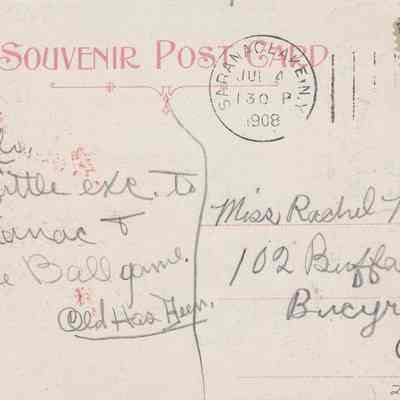 SOUVENIR POST CARD
SARANAC LAKE, N.Y.
JUL 4
130 P
1908
little exc. to
anac &
e Ball game.
Old Has Been.
Miss Rachel
102 Buffa
Bucyr